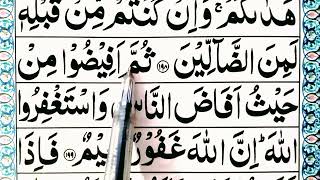 هَدٰىكُمْ ۚ وَاِنْ كُنْتُمْ مِّنْ قَبْلِهٖ
لَمِنَ الضَّآلِّیْنَ ﴿۱۹۸﴾ ثُمَّ اَفِیْضُوْا مِنْ
حَیْثُ اَفَاضَ النَّاسُ وَاسْتَغْفِرُوا
اللّٰهَ ؕ اِنَّ اللّٰهَ غَفُوْرٌ ﴿۱۹۹﴾ فَاِذَا